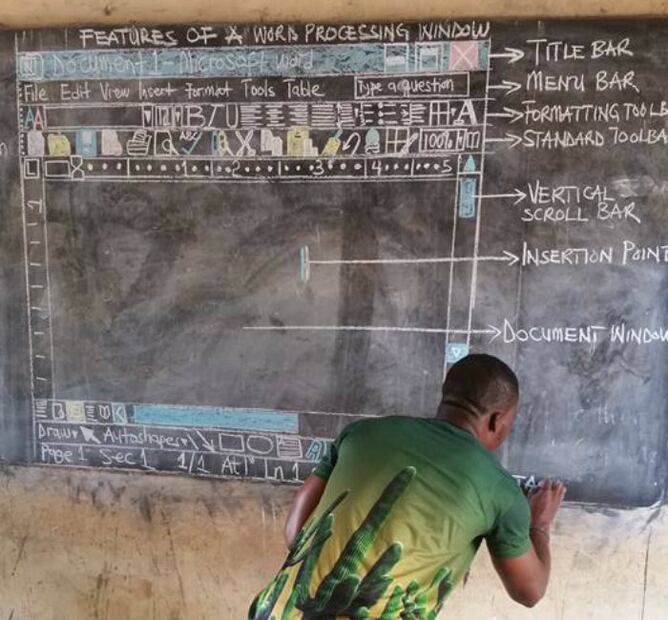 FEATURES OF A WORD PROCESSING WINDOW
W Document 1 - Microsoft word
TITLE BAR
File Edit View Insert Format Tools Table
Type a question
MENU BAR
AA
B I U
A
FORMATTING TOOLB
ABC
100%
STANDARD TOOLBA
L
1 2 3 4 5
1
VERTICAL
SCROLL BAR
INSERTION POINT
DOCUMENT WINDOW
Draw Autoshapes
A
Page 1 Sec 1 1/1 At 1" Ln 1
TA